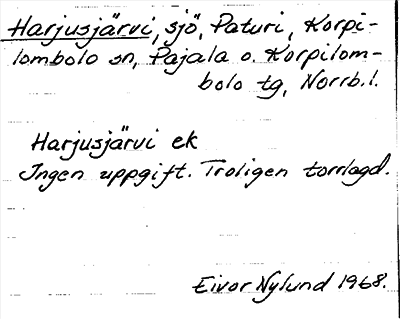 Harjusjärvi, sjö, Paturi, Korpi-
lombolo sn, Pajala o. Korpilom-
bolo tg, Norrb. l.
Harjusjärvi ek
Ingen uppgift. Troligen torrlagd.
Eivor Nylund 1968.